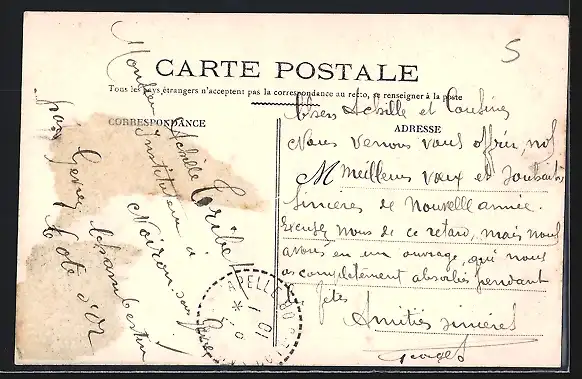 5
CARTE POSTALE
Tous les pays étrangers n'acceptent pas la correspondance au recto, se renseigner à la poste
CORRESPONDANCE
ADRESSE
Monsieur Achille Caribel
Instituteur à
Noiron sous Gevrey
par Gevrey Chambertin
Côte d'or
Chers Achille et Cousines
Nous venons vous offrir, nos
Meilleurs vœux et souhaits
sincères de nouvelle année.
Excusez nous de ce retard, mais nous
avons eu un ouvrage, qui nous
a complètement absorbés pendant
les fêtes
Amitiés sincères
Georges